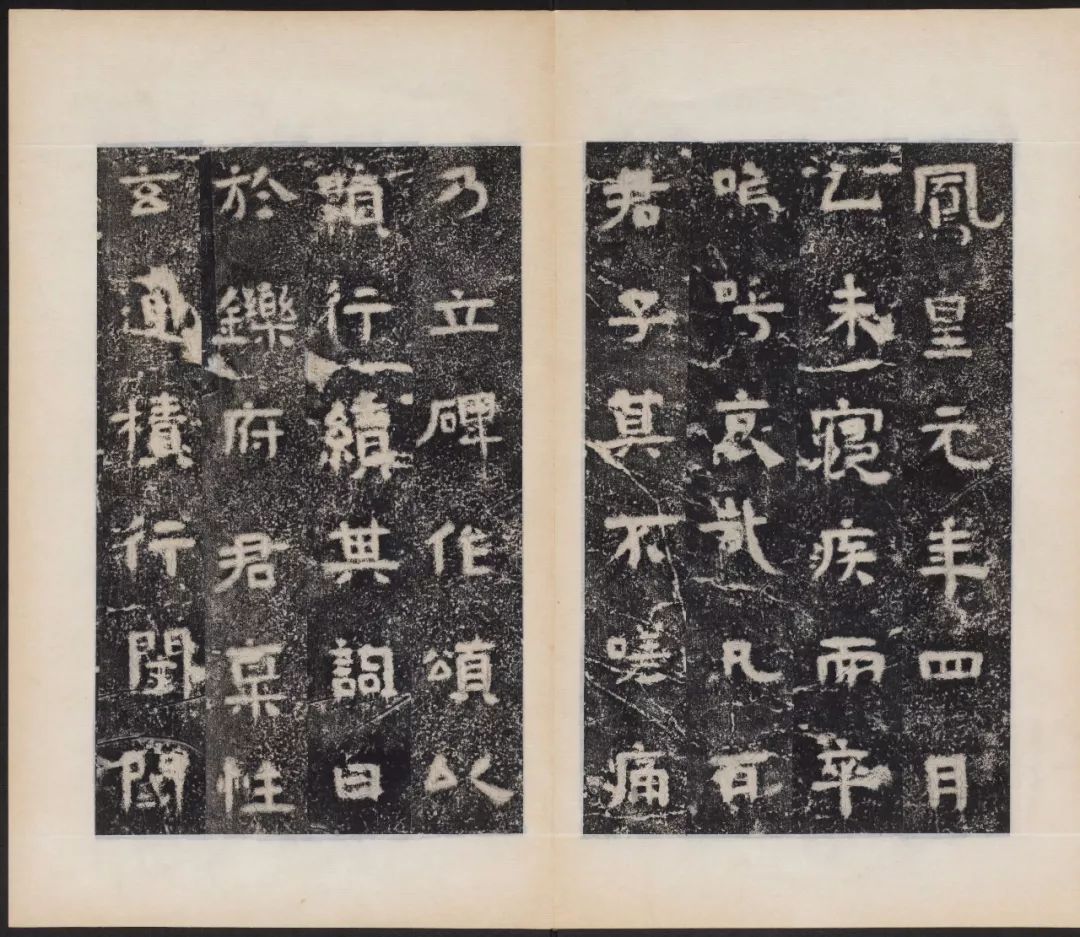 鳳皇元年四月
乙未寢疾而卒
嗚呼哀哉凡百
君子莫不嗟痛
乃立碑作頌以
顯行績其詞曰
於鑠府君稟性
玄通積行閨閤